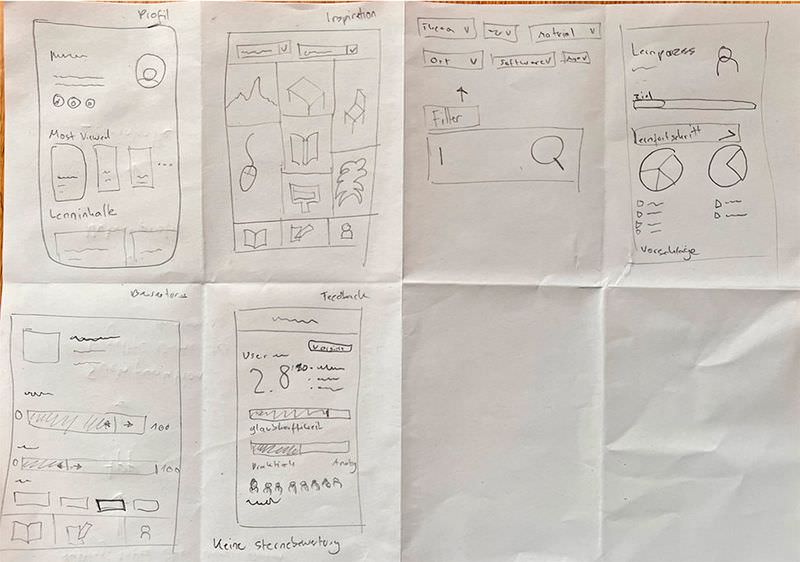 Profil
Most Viewed
Lerninhalte
Inspiration
Thema
Material
Ort
Software
Filter
Lernprozess
Ziel
Lernfortschritt
Vorschläge
0
100
0
100
Feedback
User
2.8
glaubhaftigkeit
Praktisch
Keine Sternebewertung